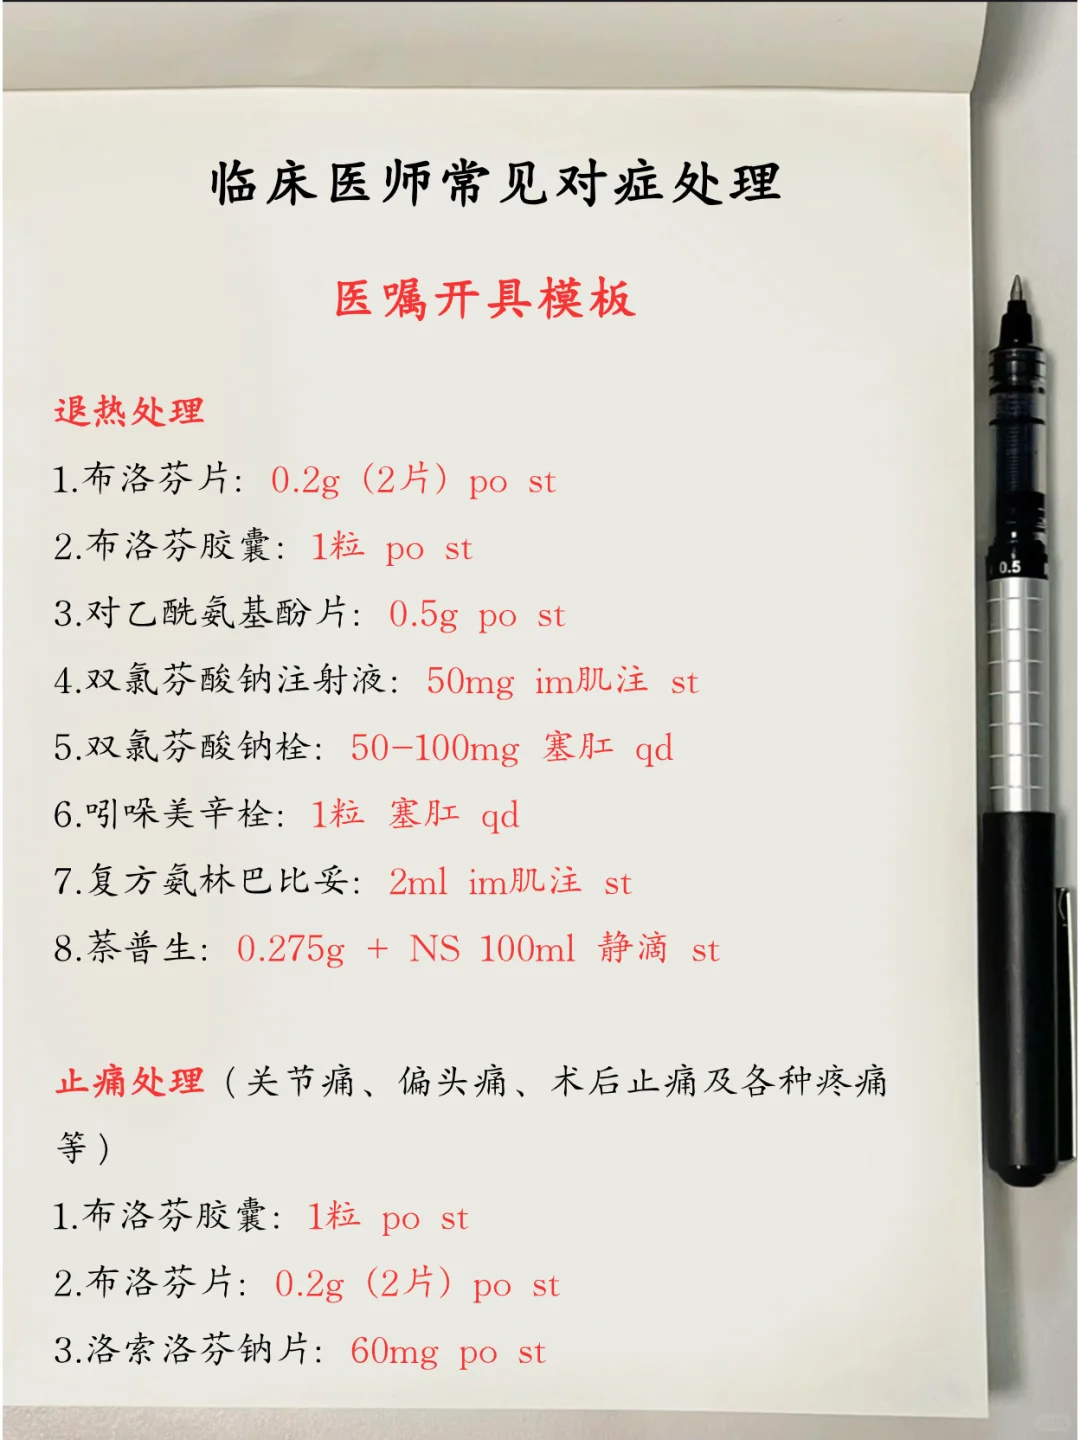 临床医师常见对症处理
医嘱开具模板
退热处理
1.布洛芬片：0.2g（2片）po st
2.布洛芬胶囊：1粒 po st
3.对乙酰氨基酚片：0.5g po st
4.双氯芬酸钠注射液：50mg im肌注 st
5.双氯芬酸钠栓：50-100mg 塞肛 qd
6.吲哚美辛栓：1粒 塞肛 qd
7.复方氨林巴比妥：2ml im肌注 st
8.萘普生：0.275g + NS 100ml 静滴 st
止痛处理（关节痛、偏头痛、术后止痛及各种疼痛
等）
1.布洛芬胶囊：1粒 po st
2.布洛芬片：0.2g（2片）po st
3.洛索洛芬钠片：60mg po st
0.5